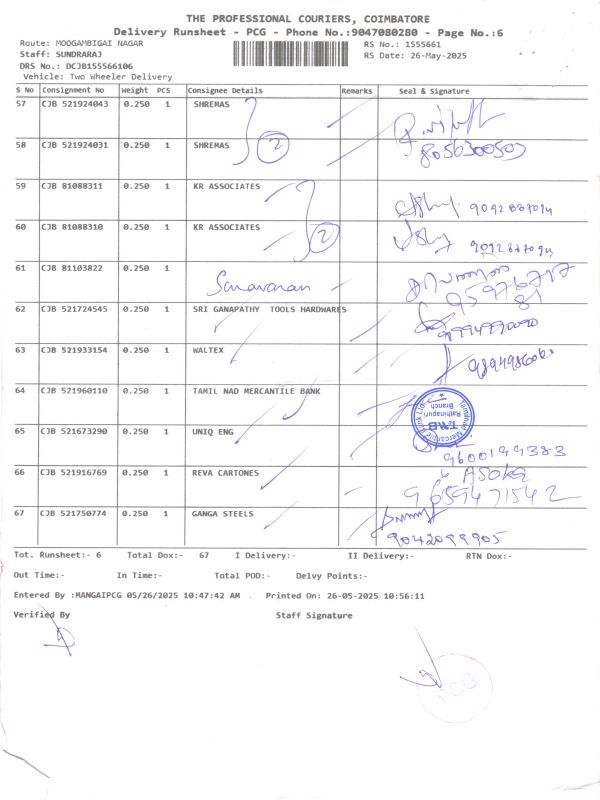 THE PROFESSIONAL COURIERS, COIMBATORE
Delivery Runsheet - PCG - Phone No.:9047080280 - Page No.:6
Route: MOOGAMBIGAI NAGAR
RS No.: 1555661
Staff: SUNDRARAJ
RS Date: 26-May-2025
DRS No.: DCJB155566106
Vehicle: Two Wheeler Delivery
S No Consignment No Weight PCS Consignee Details Remarks Seal & Signature
57 CJB 521924043 0.250 1 SHREMAS
58 CJB 521924031 0.250 1 SHREMAS 2 8056300503
59 CJB 81088311 0.250 1 KR ASSOCIATES 9092887094
60 CJB 81088310 0.250 1 KR ASSOCIATES 2 9092887094
61 CJB 81103822 0.250 1 Saravanan
62 CJB 521724545 0.250 1 SRI GANAPATHY TOOLS HARDWARES
63 CJB 521933154 0.250 1 WALTEX
64 CJB 521960110 0.250 1 TAMIL NAD MERCANTILE BANK
65 CJB 521673290 0.250 1 UNIQ ENG 9600199383
66 CJB 521916769 0.250 1 REVA CARTONES ASOKA
9659471542
67 CJB 521750774 0.250 1 GANGA STEELS 9042099905
Tot. Runsheet:- 6 Total Dox:- 67 I Delivery:- II Delivery:- RTN Dox:-
Out Time:- In Time:- Total POD:- Delvy Points:-
Entered By :MANGAIPCG 05/26/2025 10:47:42 AM . Printed On: 26-05-2025 10:56:11
Verified By Staff Signature